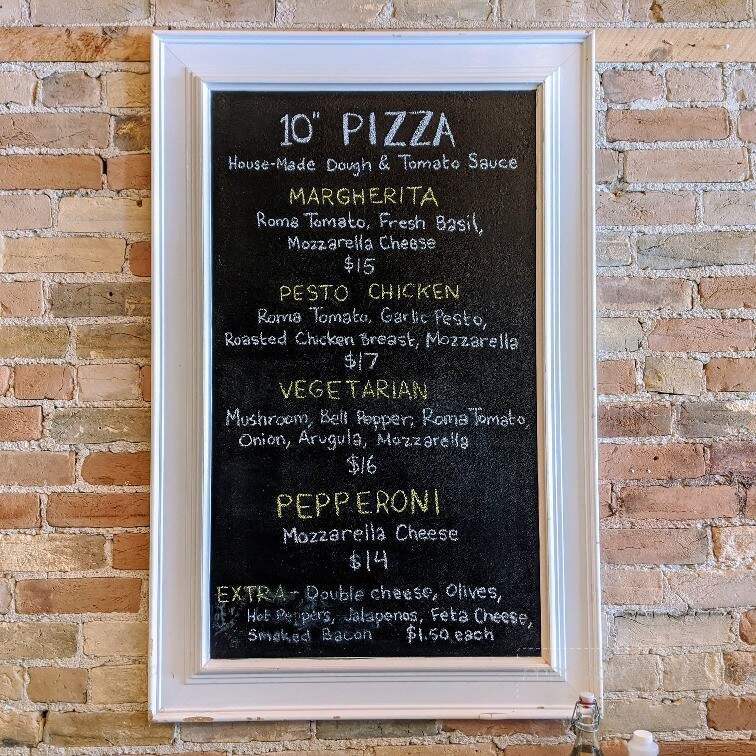 10" PIZZA
House-Made Dough & Tomato Sauce
MARGHERITA
Roma Tomato, Fresh Basil,
Mozzarella Cheese
$15
PESTO CHICKEN
Roma Tomato, Garlic Pesto,
Roasted Chicken Breast, Mozzarella
$17
VEGETARIAN
Mushroom, Bell Pepper, Roma Tomato,
Onion, Arugula, Mozzarella
$16
PEPPERONI
Mozzarella Cheese
$14
EXTRA - Double cheese, Olives,
Hot Peppers, Jalapenos, Feta Cheese,
Smoked Bacon $1.50 each